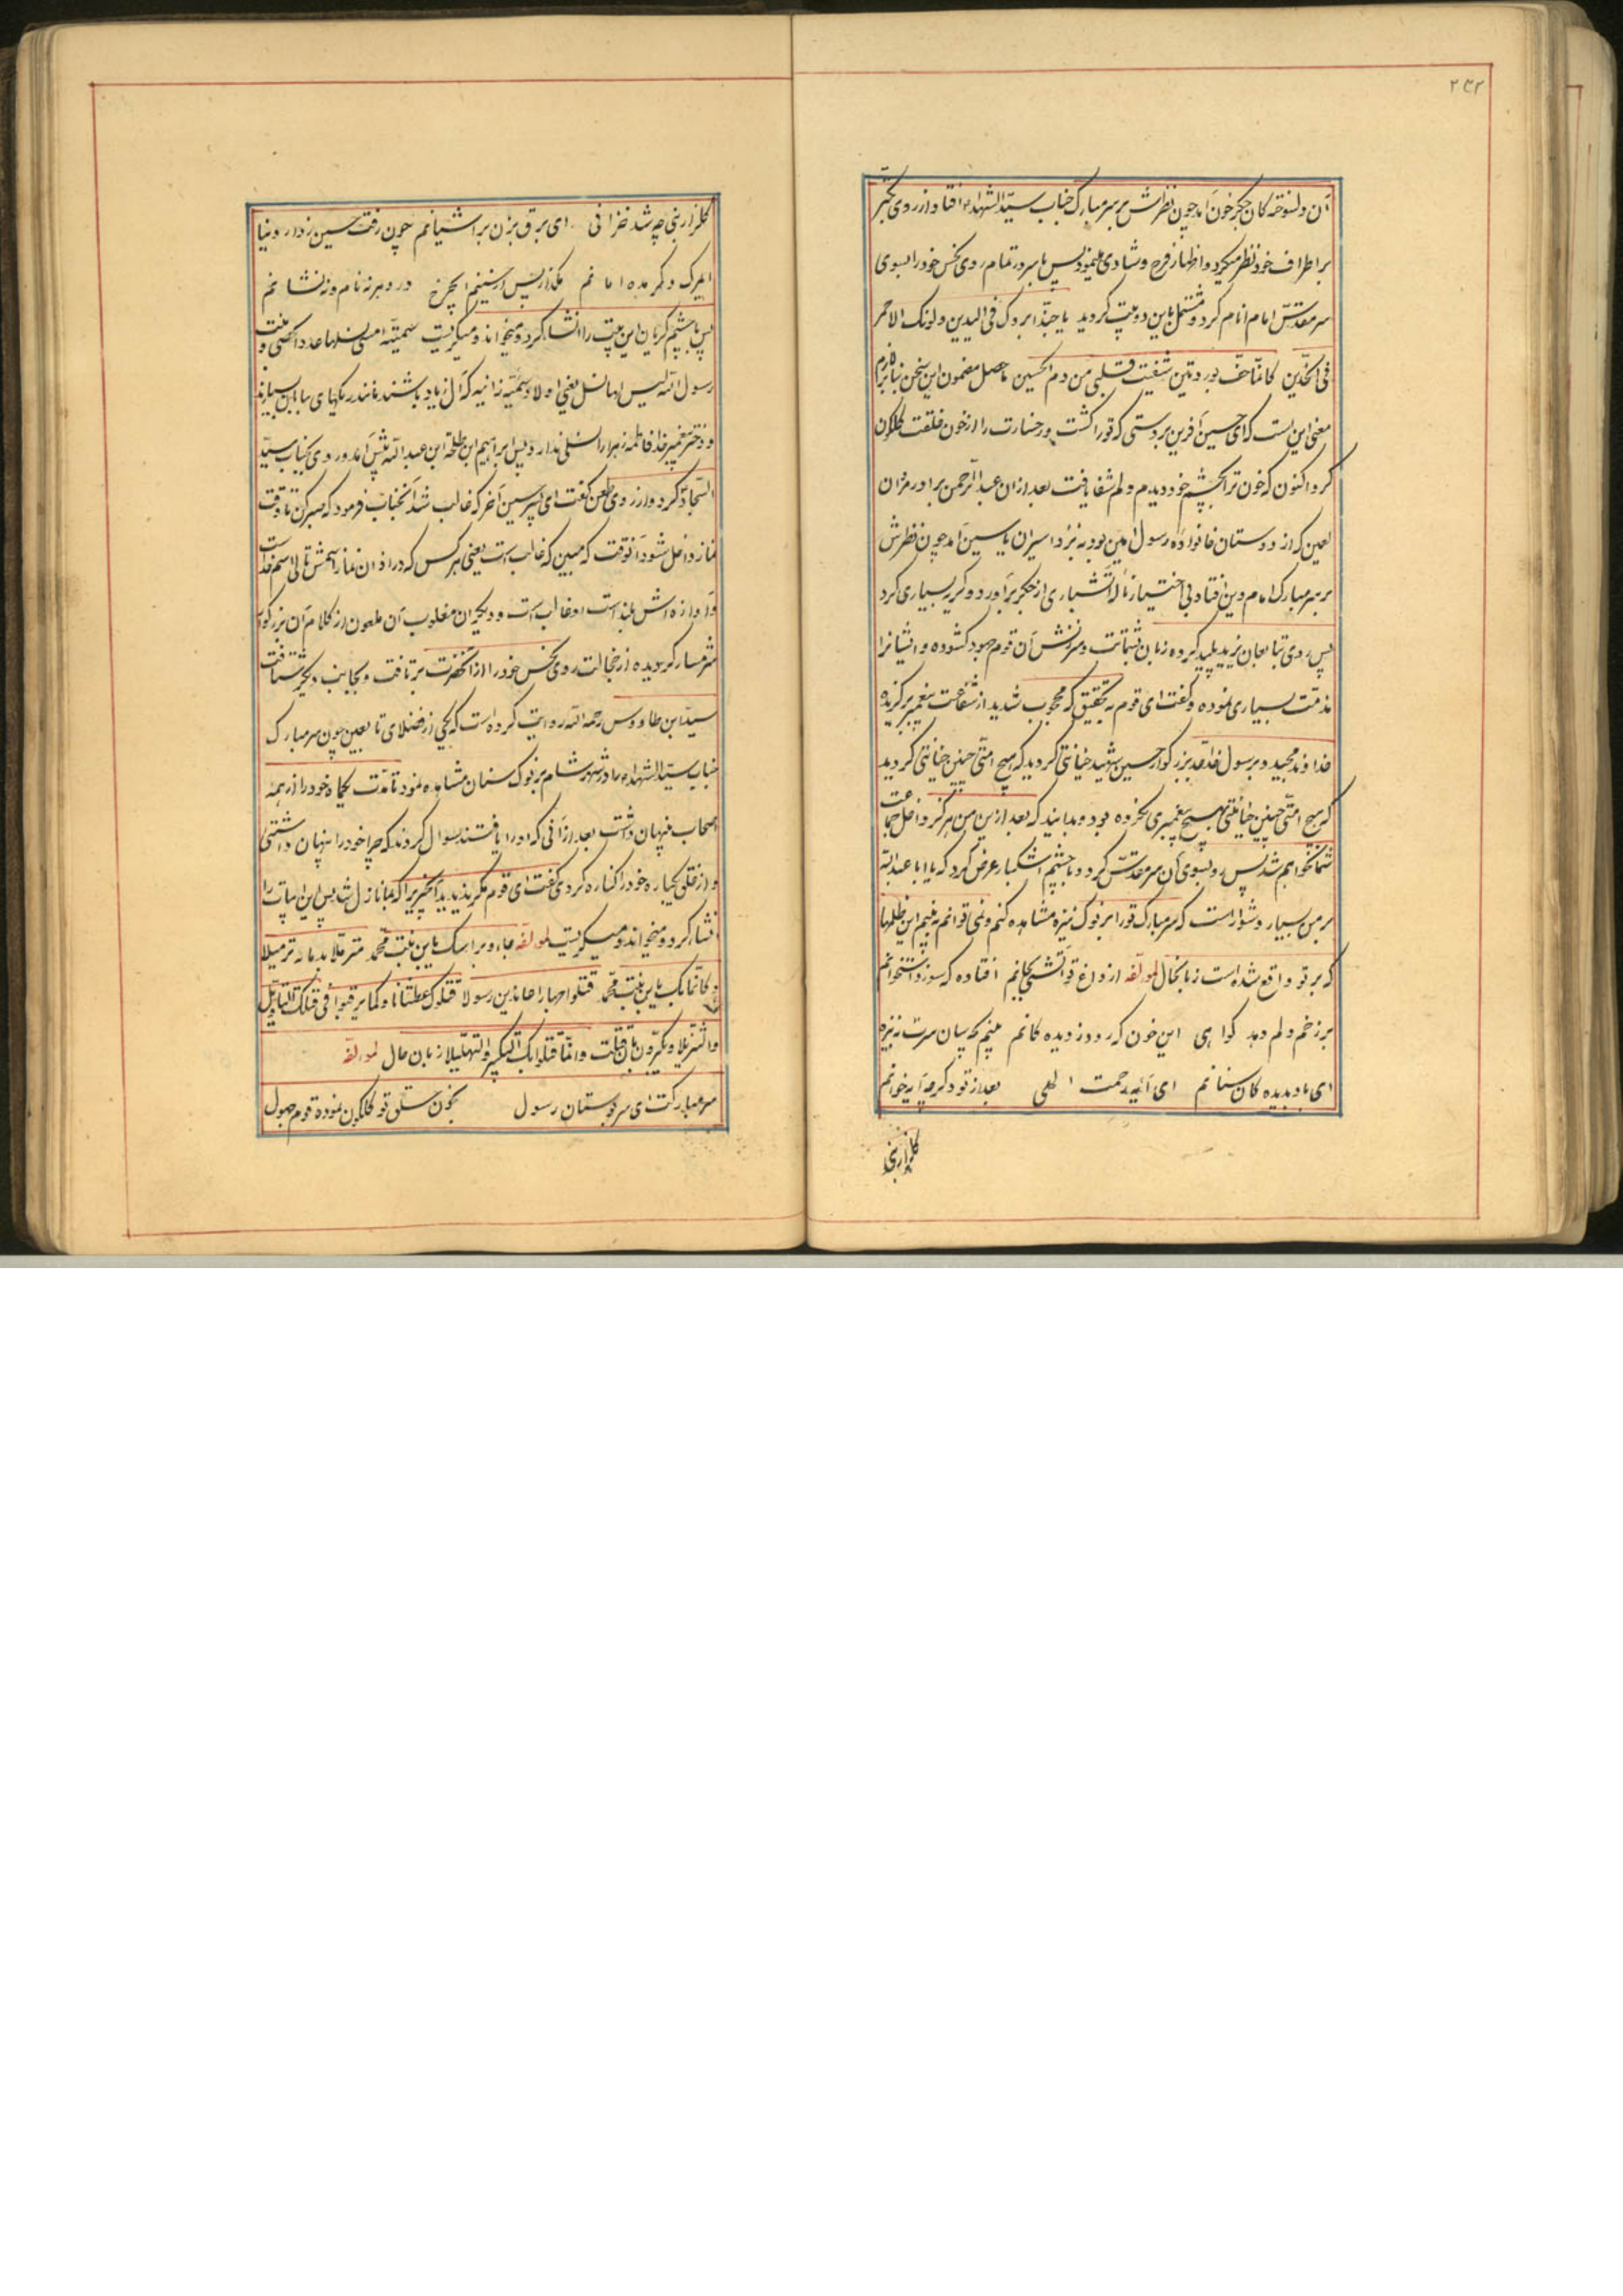 ۲۴۲
آن دلسوخته کان جگرخون آمد چون نظرش بر سر مبارک جناب سیّدالشهداء افتاد از روی تکبّر
بر اطراف خود نظر میکرد و اظهار فرح و شادی مینمود پس با سرور تمام روی نحس خود را بسوی
سر مقدّس امام انام کرد و متمثّل باین دو بیت گردید یا حبّذا بردک فی الیدین ولونک الاحمر
فی الخدّین کانّما حفّ بوردتین شفیت قلبی من دم الحسین حاصل مضمون این سخن
معنی این است که ای حسین آفرین بر دستی که تو را کشت و رخسارت را از خون حلقت گلگون
کرد اکنون که خون ترا بچشم خود دیدم دلم شفا یافت بعد از آن عبدالرّحمن برادر مروان
لعین که از دوستان خانواده رسول امین بود به نزد اسیران یاسین آمد چون نظرش
بر سر مبارک امام دین افتاد بی اختیار ناله آتشباری از جگر برآورد و گریه بسیاری کرد
پس روی بتابعان یزید پلید کرده زبان بشماتت و سرزنش آن قوم جهود کشوده و ایشانرا
مذمّت بسیاری نموده و گفت ای قوم به تحقیق که محجوب شدید از شفاعت پیغمبر برگزیده
خداوند مجید و بر رسول خدا جد بزرگوار حسین شهید خیانتی کردید که هیچ امّتی چنین خیانتی کردید
که هیچ امّتی چنین خیانتی بهیچ پیغمبری نکرده بود و بدانید که بعد از این من هرگز داخل جماعت
شما نخواهم شد پس رو بسوی آن سر مقدّس کرد و با چشم اشکبار عرض کرد که یا ابا عبدالله
بر من بسیار دشوار است که سر مبارک تو را بر نوک نیزه مشاهده کنم و نمی توانم به بینم این ظلمها
که بر تو واقع شده است زبانحال لمؤلفه از داغ تو آتشی بجانم افتاده که سوزد استخوانم
بر زخم دلم دهد گواهی این خون که رود ز دیدکانم بینم که بسان سرت به نیزه
ای باد بدیده کان سنانم ای آیه رحمت الهی بعد از تو دگر چه آیه خوانم
گلزار نبی
گلزار نبی چه شد خزانی ای برق بزن بر آشیانم چون رفت حسین ز دار دنیا
ای مرگ دگر مده امانم مگذار پس از اینم ای چرخ در دهر نه نام و نه نشانم
پس با چشم گریان این بیت را انشا کرد و میخواند و میگریست سمیّة امسی نسلها عدد الحصی و بنت
رسول الله لیس لها نسل یعنی اولاد سمیّه زانیه که آل زیاد باشند مانند ریگهای بیابان بسیارند
و دختر پیغمبر خدا فاطمه زهرا را نسلی ندارد پس ابراهیم ابن طلحة ابن عبدالله پیش آمد و روی بجناب سیّد
السّجاد کرد و از روی طعن گفت ای پسر حسین آخر که غالب شد آنجناب فرمود که صبر کن تا وقت
نماز داخل شود آنوقت که ببین که غالب است یعنی هر کس که در اذان نماز اسمش تالی اسم خدا
و آوازه اش بلند است او غالب است و دیگران مغلوب آن ملعون از کلام آن بزرگوار
شرمسار گردیده از خجالت روی نحس خود را از آنحضرت برتافت و بجانب دیگر شتافت
سیّد ابن طاووس رحمه الله روایت کرده است که یکی از فضلای تابعین چون سر مبارک
جناب سیّدالشهداء را در شهر شام بر نوک سنان مشاهده نمود تا مدّت یکماه خود را از همه
اصحاب پنهان داشت بعد از آنی که او را یافتند سوال کردند که چرا خود را پنهان داشتی
و از خلق یکباره خود را کناره کردی گفت ای قوم مگر ندیدید آنچیزی را که بما نازل شد پس این ابیات را
انشاء کرد و میخواند و میگریست لمؤلفه جاءوا براسک یابن بنت محمّد مترمّلا بدمائه ترمیلا
و کانّما بک یابن بنت محمّد قتلوا جهارا عامدین رسولا قتلوک عطشانا و لما یرقبوا فی قتلک التاویل
والتنزیلا و یکبّرون بان قتلت و انّما قتلوا بک التکبیر و التهلیلا زبان حال لمؤلفه
سر مبارکت ای سرو بستان رسول بخون سلق تو گلگون نموده قوم جهول